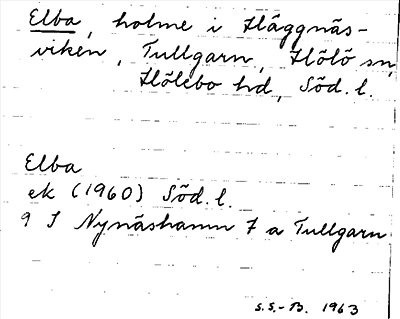 Elba, holme i Häggnäs-
viken, Tullgarn, Hölö sn,
Hölebo hd, Söd. l.
Elba
ek (1960) Söd. l.
9 I Nynäshamn 7 a Tullgarn
S.S.-B. 1963